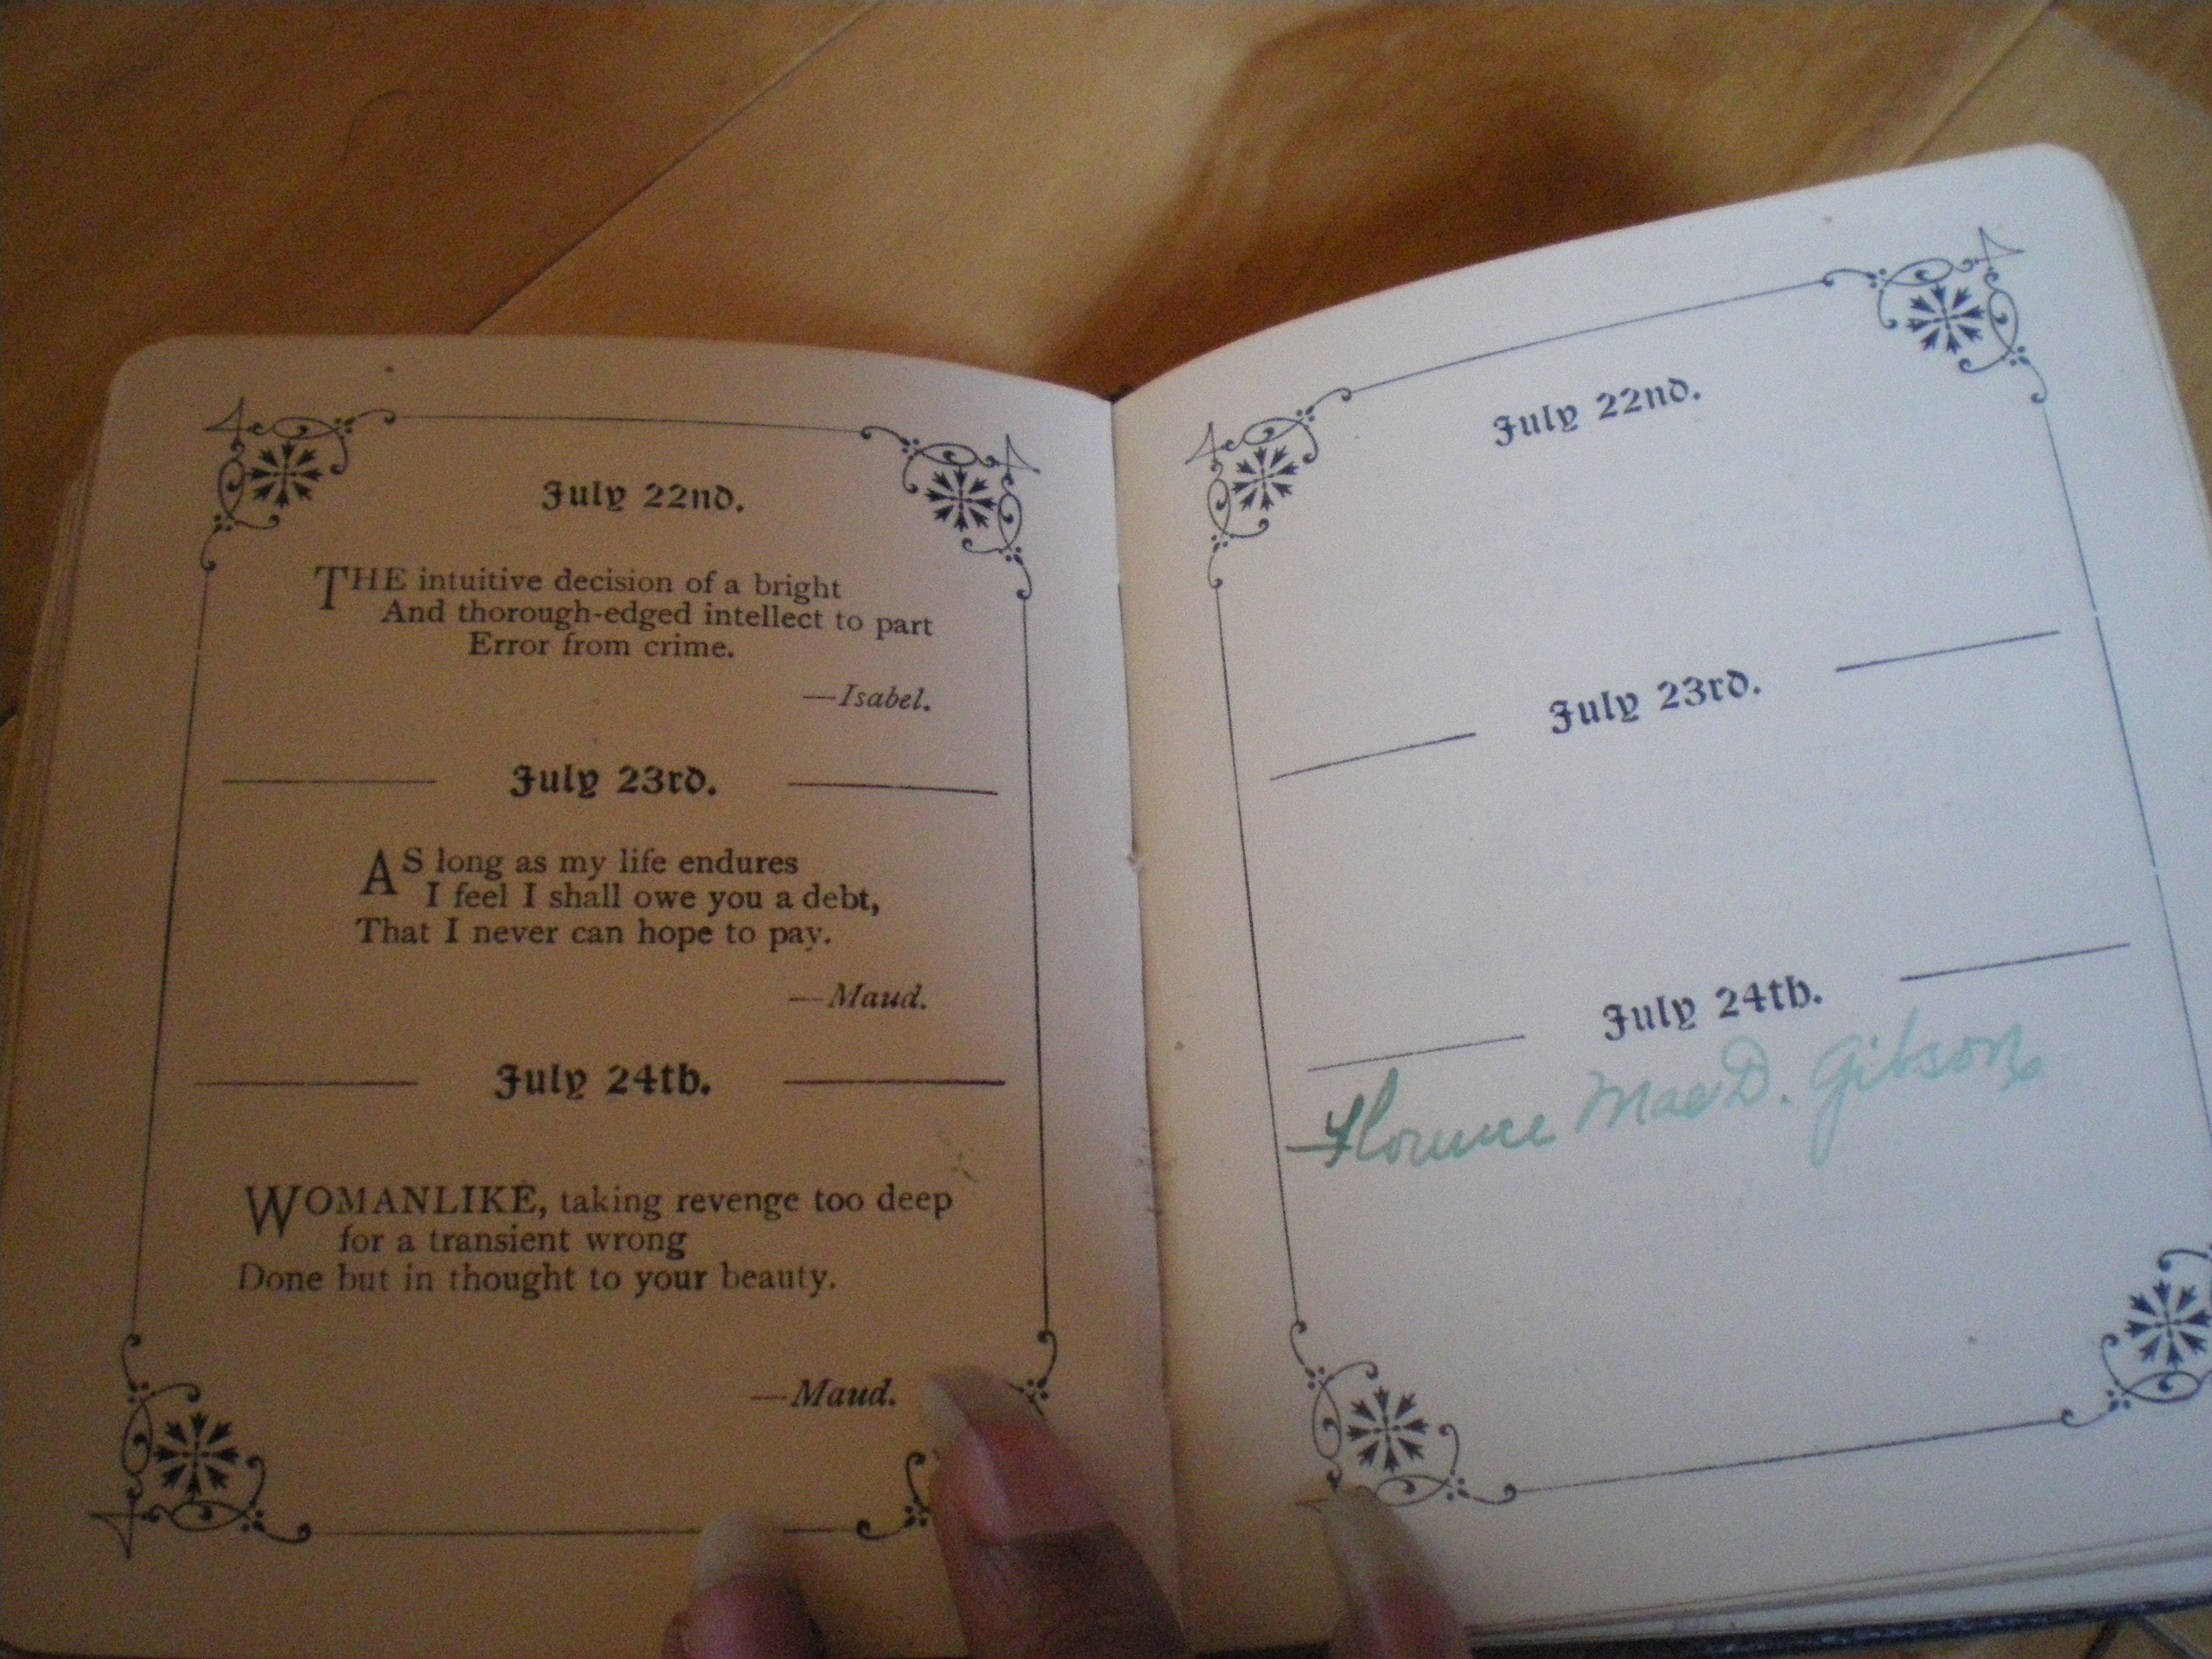 July 22nd.
THE intuitive decision of a bright
And thorough-edged intellect to part
Error from crime.
—Isabel.
July 23rd.
AS long as my life endures
I feel I shall owe you a debt,
That I never can hope to pay.
—Maud.
July 24th.
WOMANLIKE, taking revenge too deep
for a transient wrong
Done but in thought to your beauty.
—Maud.
July 22nd.
July 23rd.
July 24th.
Florence MacD. Gibson